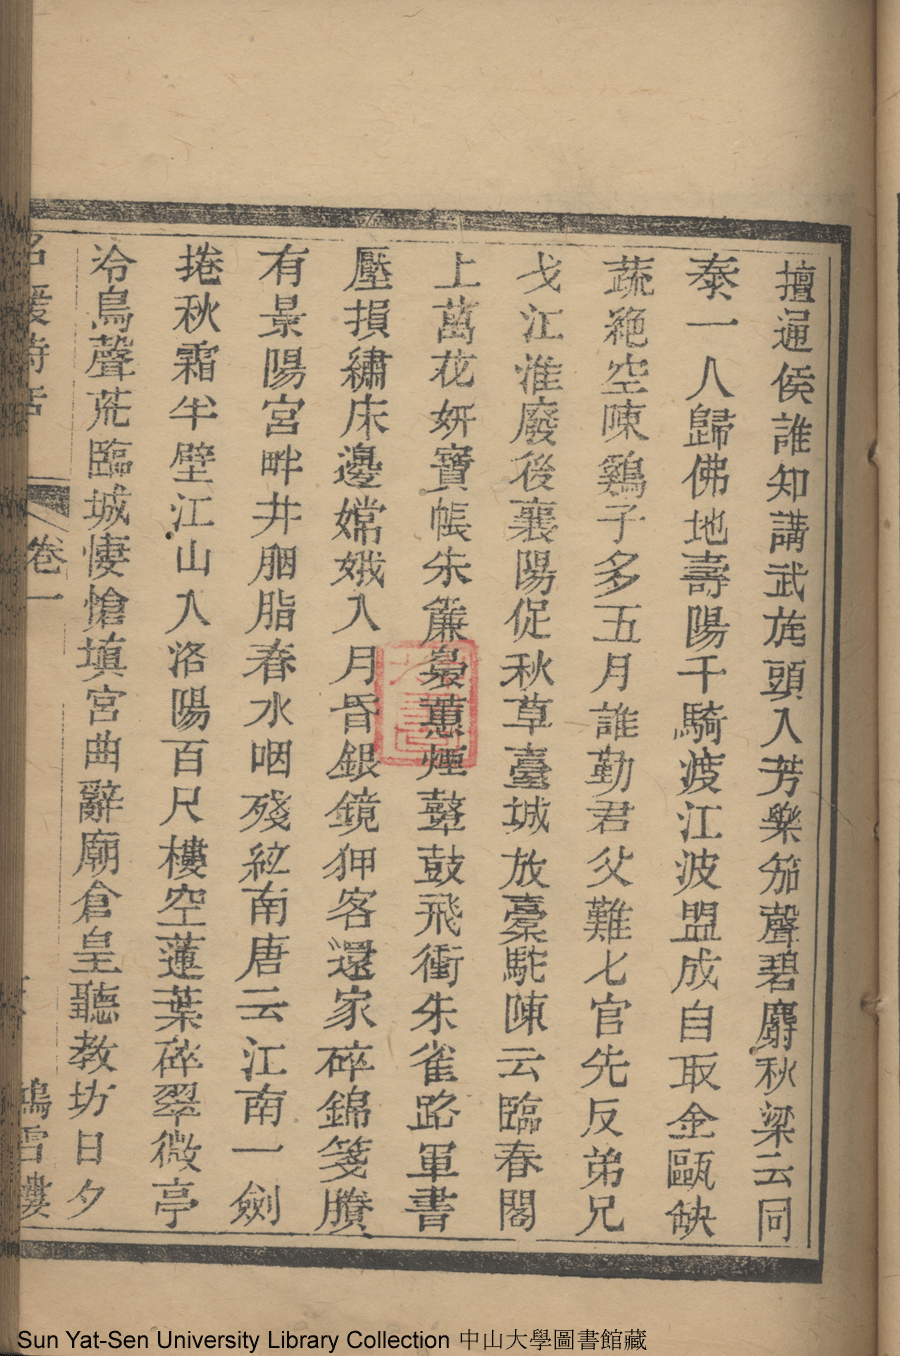 擅逼侯誰知講武旄頭入芳樂笳聲碧麝秋梁云同
泰一人歸佛地壽陽千騎渡江波盟成自取金甌缺
蔬絶空陳鷄子多五月誰勤君父難七官先反弟兄
戈江淮廢後襄陽促秋草臺城放橐駝陳云臨春閣
上萬花妍寶帳朱簾裊蕙煙鼙鼓飛衝朱雀路軍書
壓損繡床邊嫦娥入月昏銀鏡狎客還家碎錦箋賸
有景陽宮畔井胭脂春水咽殘紅南唐云江南一劍
捲秋霜半壁江山入洛陽百尺樓空蓮葉碎翠微亭
冷鳥聲荒臨城悽愴填宮曲辭廟倉皇聽教坊日夕
名媛詩話
卷一
鴻雪樓
Sun Yat-Sen University Library Collection 中山大學圖書館藏